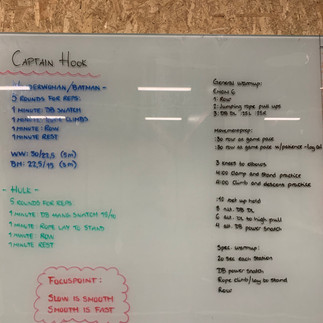 CAPTAIN HOOK
WONDERWOMAN/BATMAN -
5 ROUNDS FOR REPS:
1 MINUTE: DB SNATCH
1 MINUTE: ROPE CLIMBS
1 MINUTE: ROW
1 MINUTE: REST
WW: 30/22,5 (3m)
BM: 22,5/15 (3m)
- HULK -
5 ROUNDS FOR REPS
1 MINUTE: DB HANG SNATCH 15/10
1 MINUTE: ROPE LAY TO STAND
1 MINUTE: ROW
1 MINUTE REST
FOCUSPOINT:
SLOW IS SMOOTH
SMOOTH IS FAST
General warmup:
EMOM 6
1: Row
2: Jumping rope pull ups
3: DB
Movementprep:
:30 row at game pace
:30 row at game pace w/partner
3 kneel to elbows
4:00 climb and stand practice
4:00 climb and descent practice
:10 set up hold
8 alt. DB DL
6 alt. DL to high pull
4 alt. DB power snatch
Spec. warmup:
20 sec each station
DB power snatch
Rope climb/lay to stand
Row